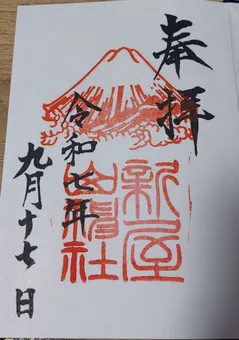 奉拝
新屋
山神社
令和七年
九月十七日